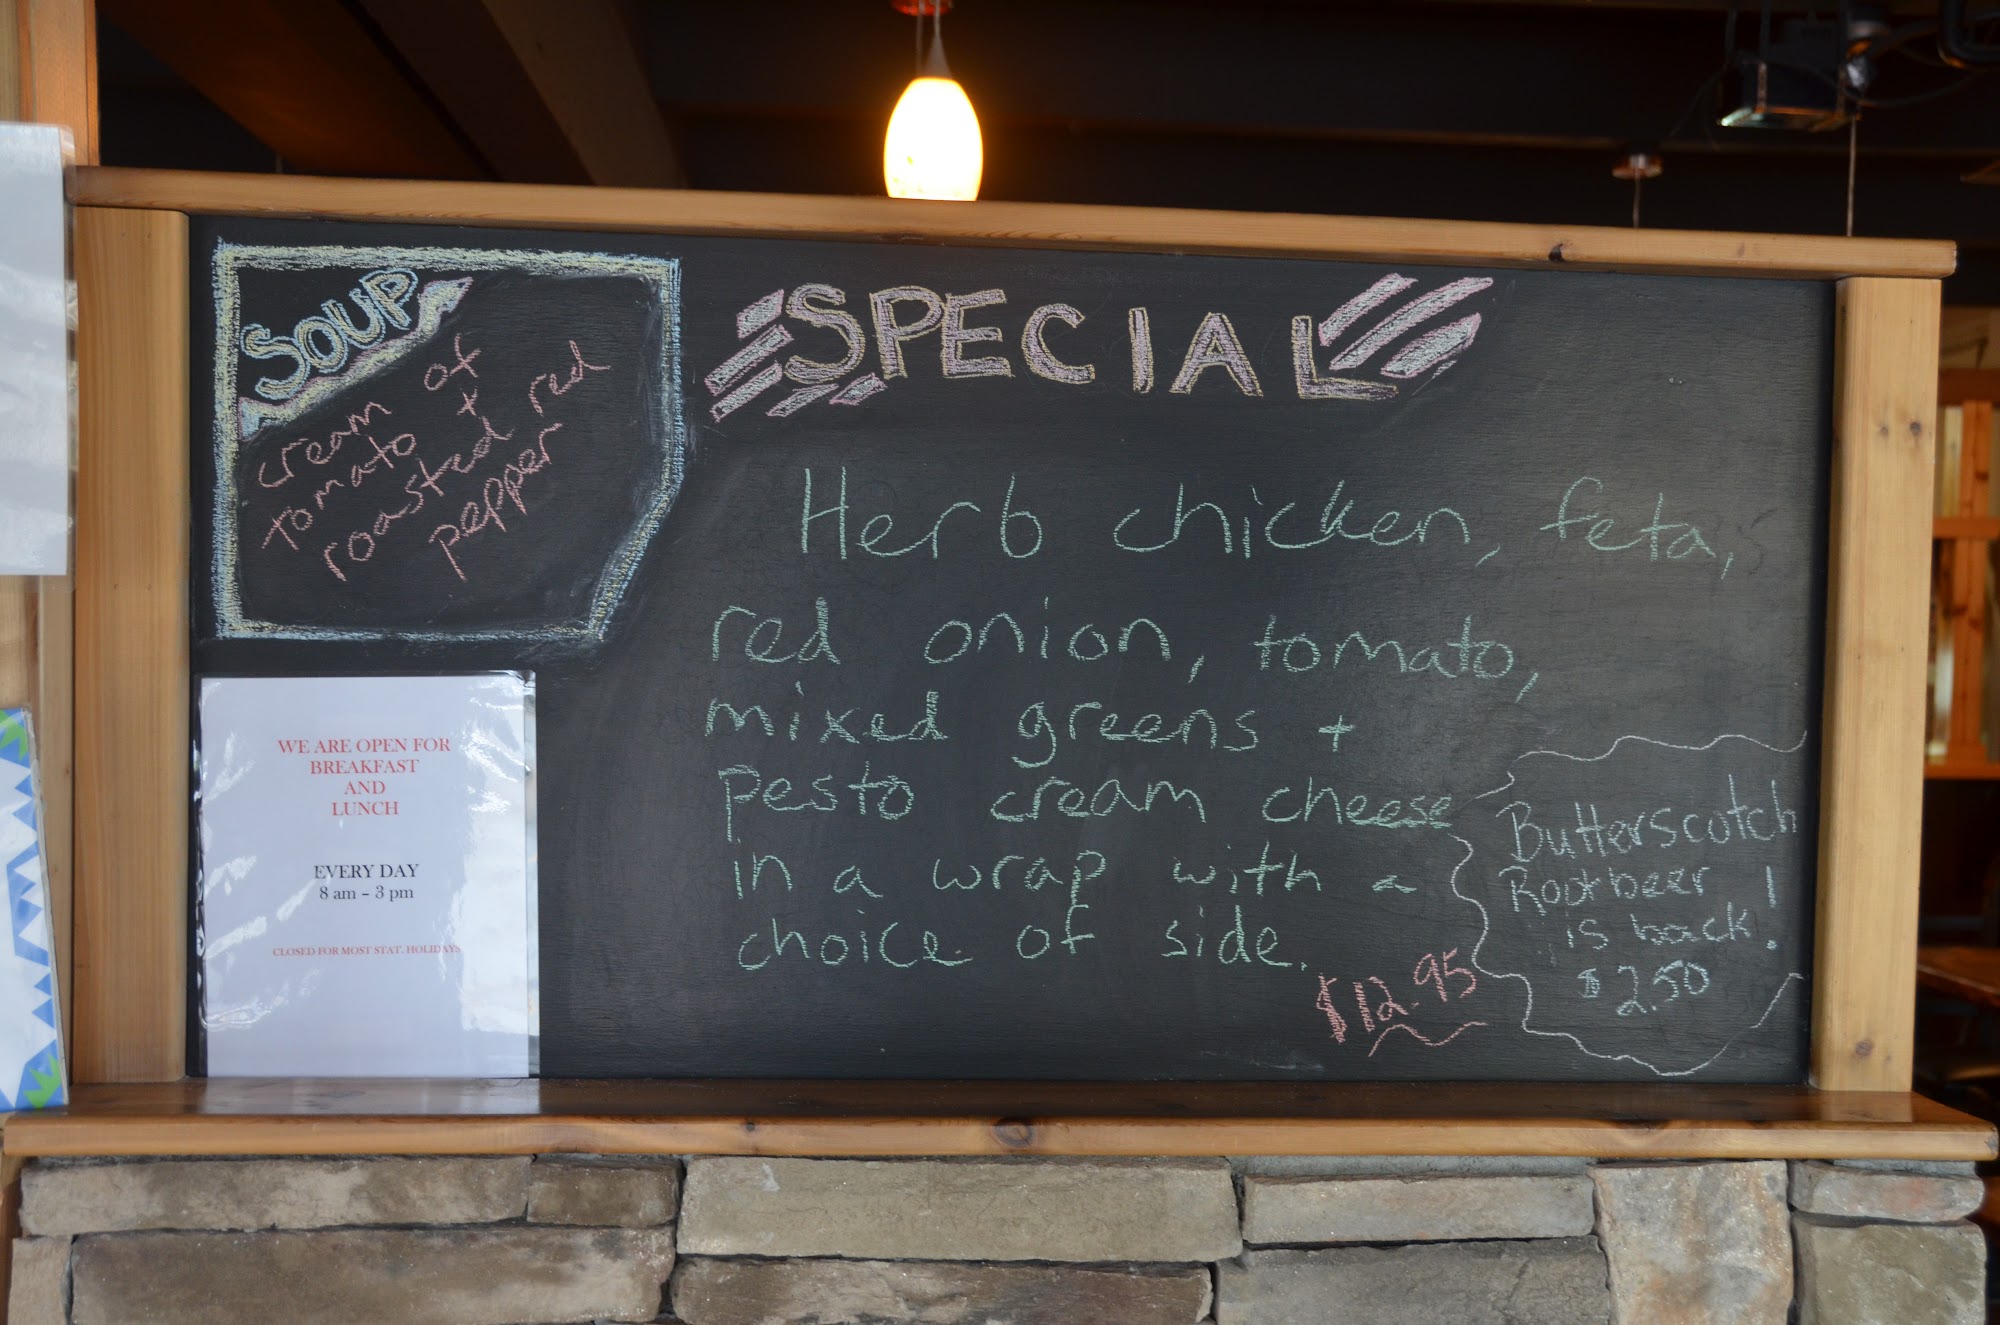 SOUP
cream of
tomato +
roasted red
pepper
SPECIAL
Herb chicken, feta,
red onion, tomato,
mixed greens +
pesto cream cheese
in a wrap with a
choice of side.
$12.95
Butterscotch
Rootbeer
is back!
$2.50
WE ARE OPEN FOR
BREAKFAST
AND
LUNCH
EVERY DAY
8 am – 3 pm
CLOSED FOR MOST STAT. HOLIDAYS